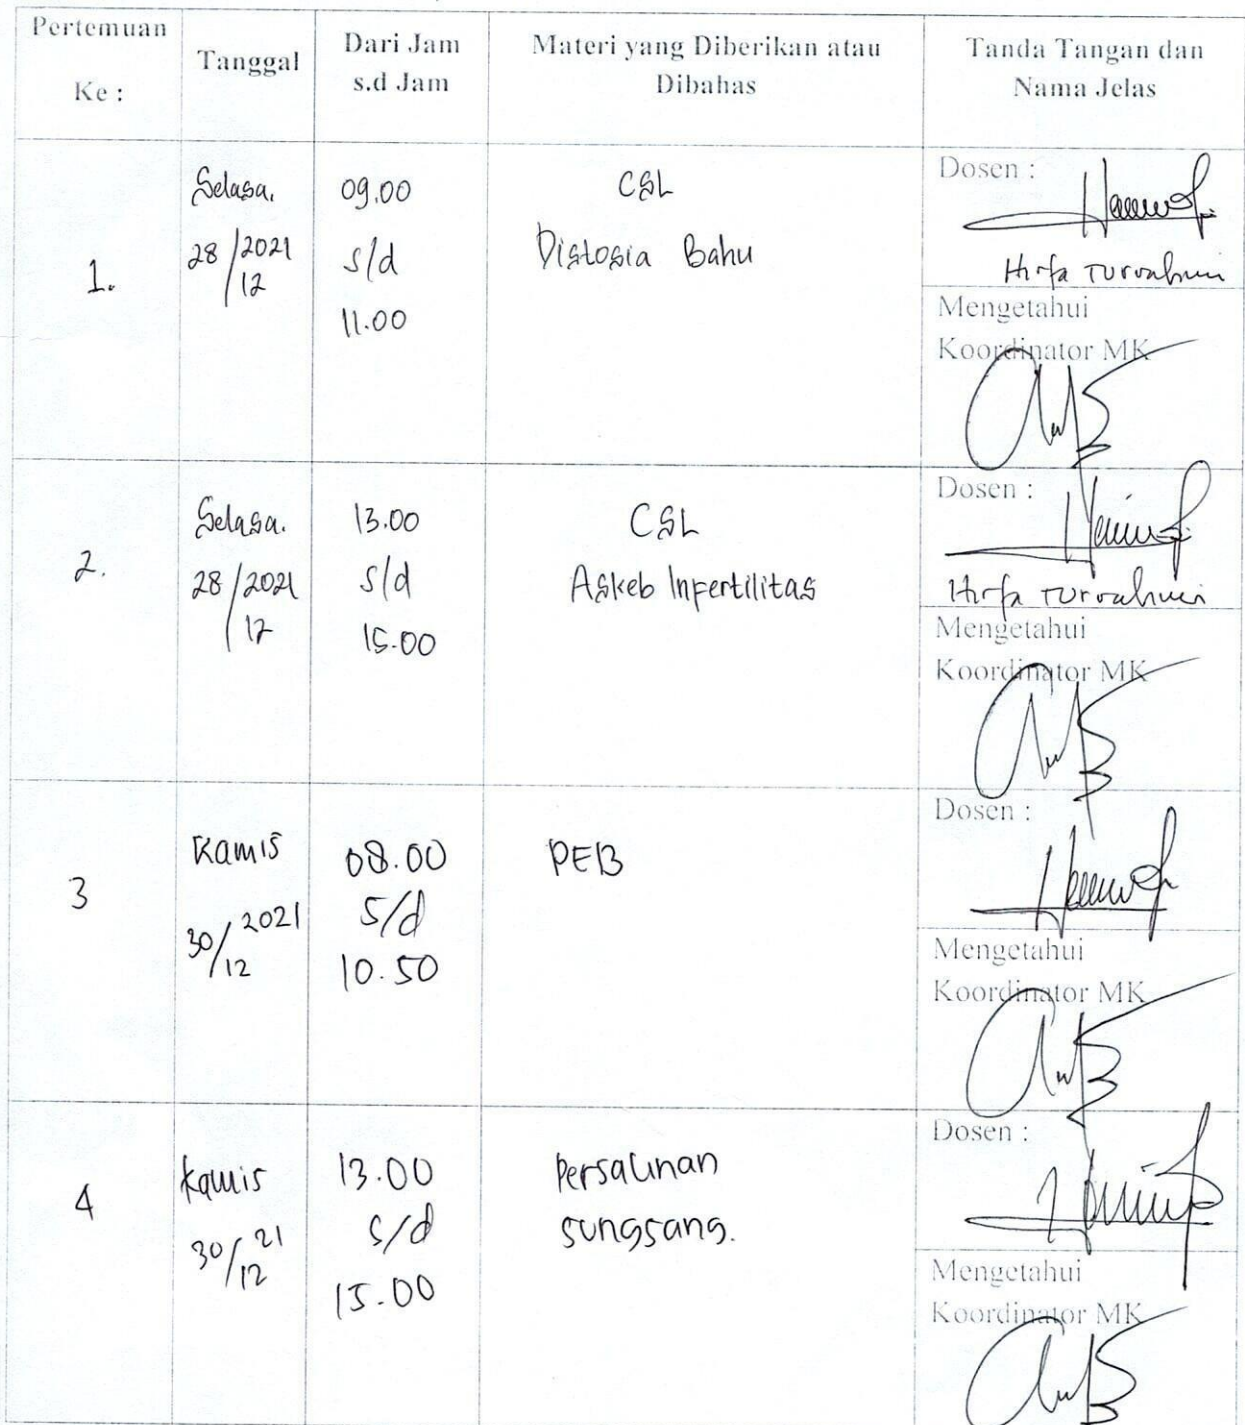 Pertemuan
Ke :
Tanggal
Dari Jam
s.d Jam
Materi yang Diberikan atau
Dibahas
Tanda Tangan dan
Nama Jelas
1.
Selasa.
28/2021
12
09.00
s/d
11.00
CSL
Distosia Bahu
Dosen :
Hirfa
Mengetahui
Koordinator MK
2.
Selasa.
28/2021
12
13.00
s/d
15.00
CSL
Askeb Infertilitas
Dosen :
Hirfa
Mengetahui
Koordinator MK
3
Kamis
30/2021
12
08.00
s/d
10.50
PEB
Dosen :
Mengetahui
Koordinator MK
4
Kamis
30/21
12
13.00
s/d
15.00
Persalinan
sungsang.
Dosen :
Mengetahui
Koordinator MK